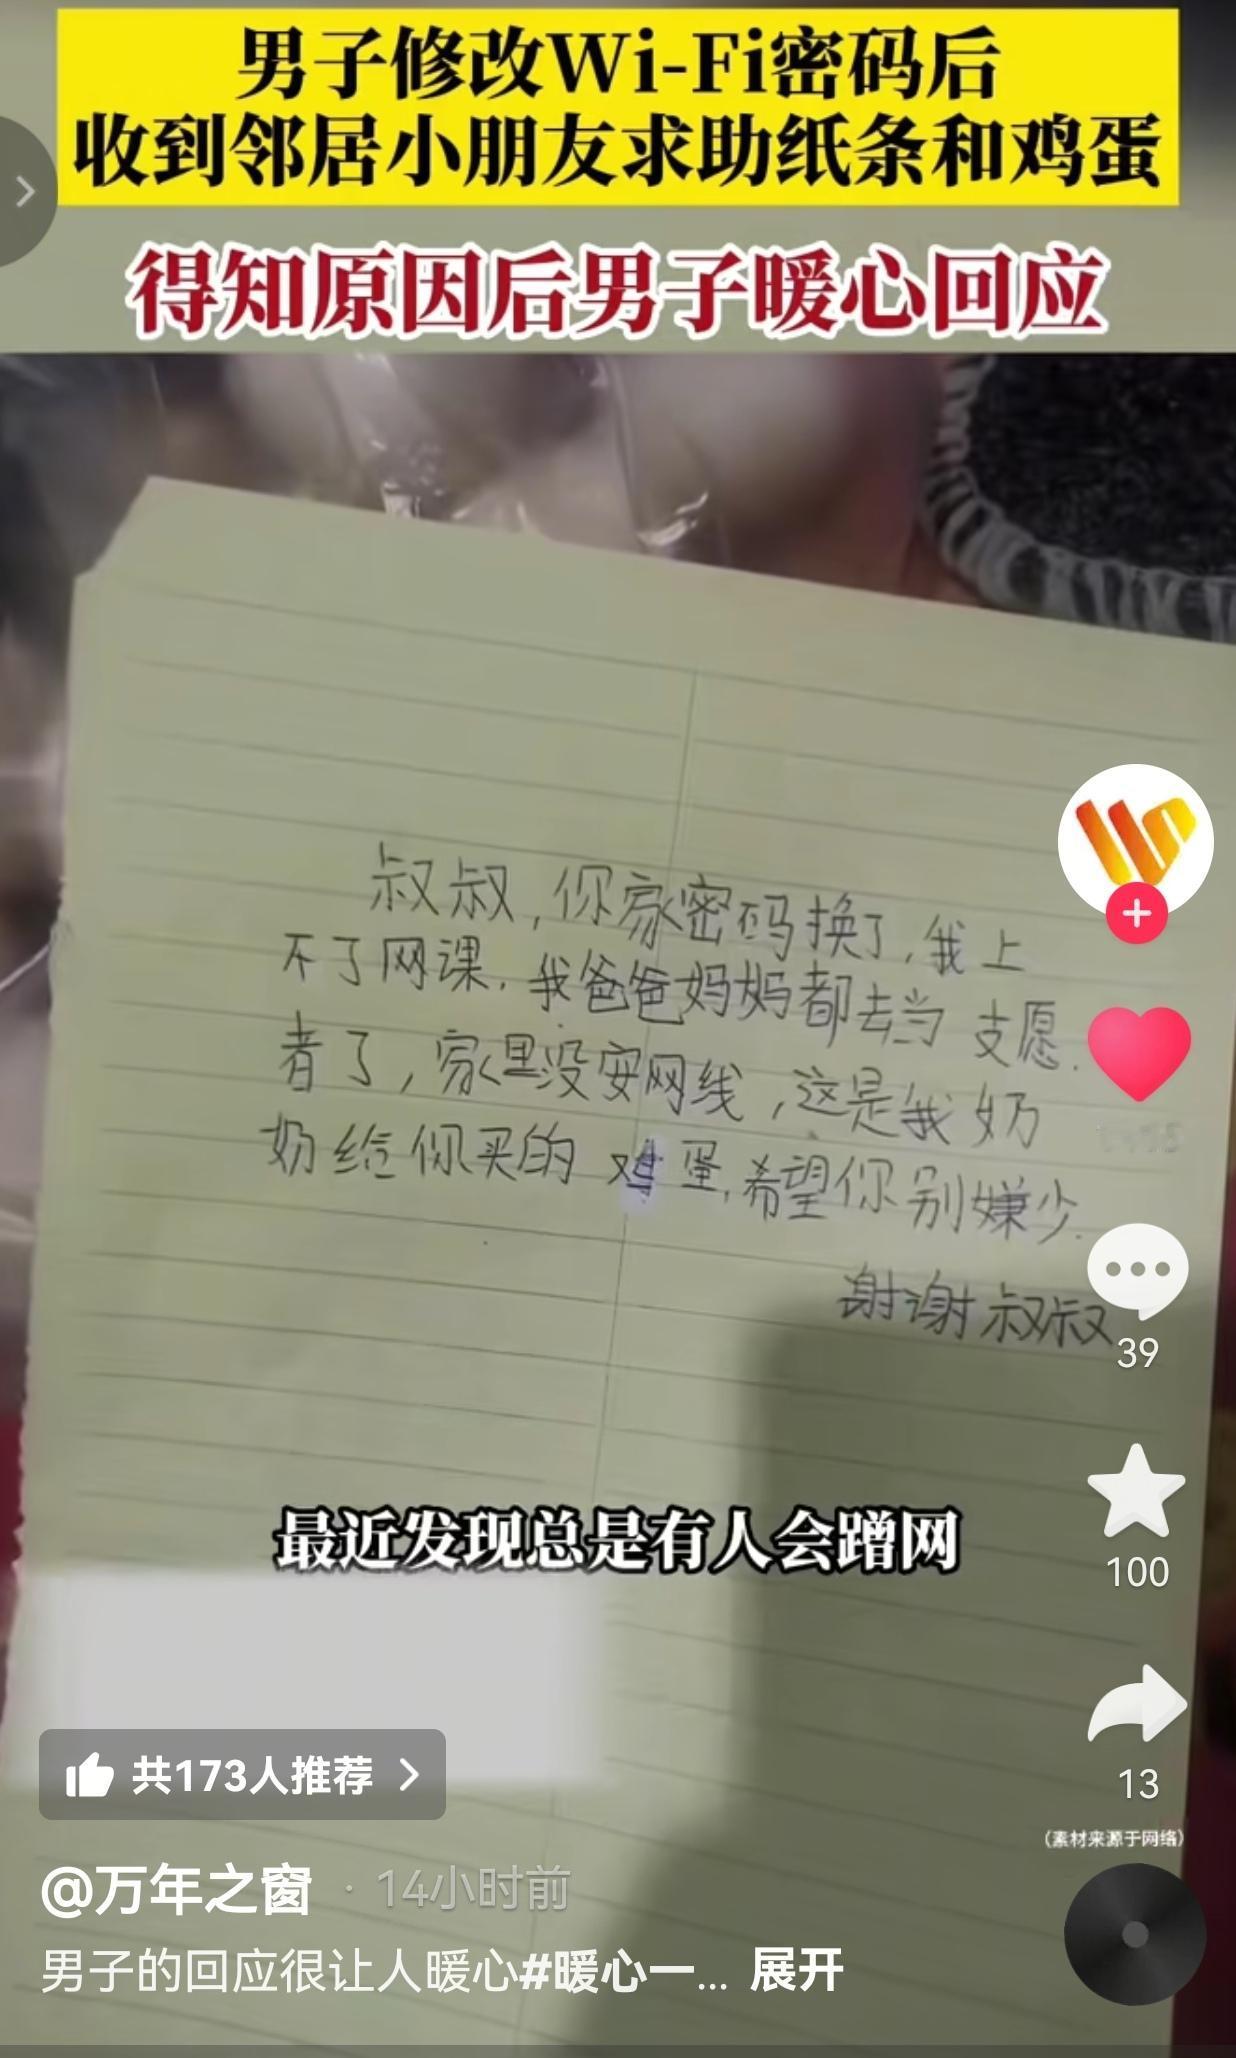 男子修改Wi-Fi密码后
收到邻居小朋友求助纸条和鸡蛋
得知原因后男子暖心回应
叔叔,你家密码换了,我上
不了网课.我爸爸妈妈都去当支愿.
者了,家里没安网线,这是我奶
奶给你买的鸡蛋,希望你别嫌少.
谢谢叔叔
39
最近发现总是有人会蹭网
100
共173人推荐
13
(素材来源于网络)
@万年之窗 · 14小时前
男子的回应很让人暖心#暖心一... 展开